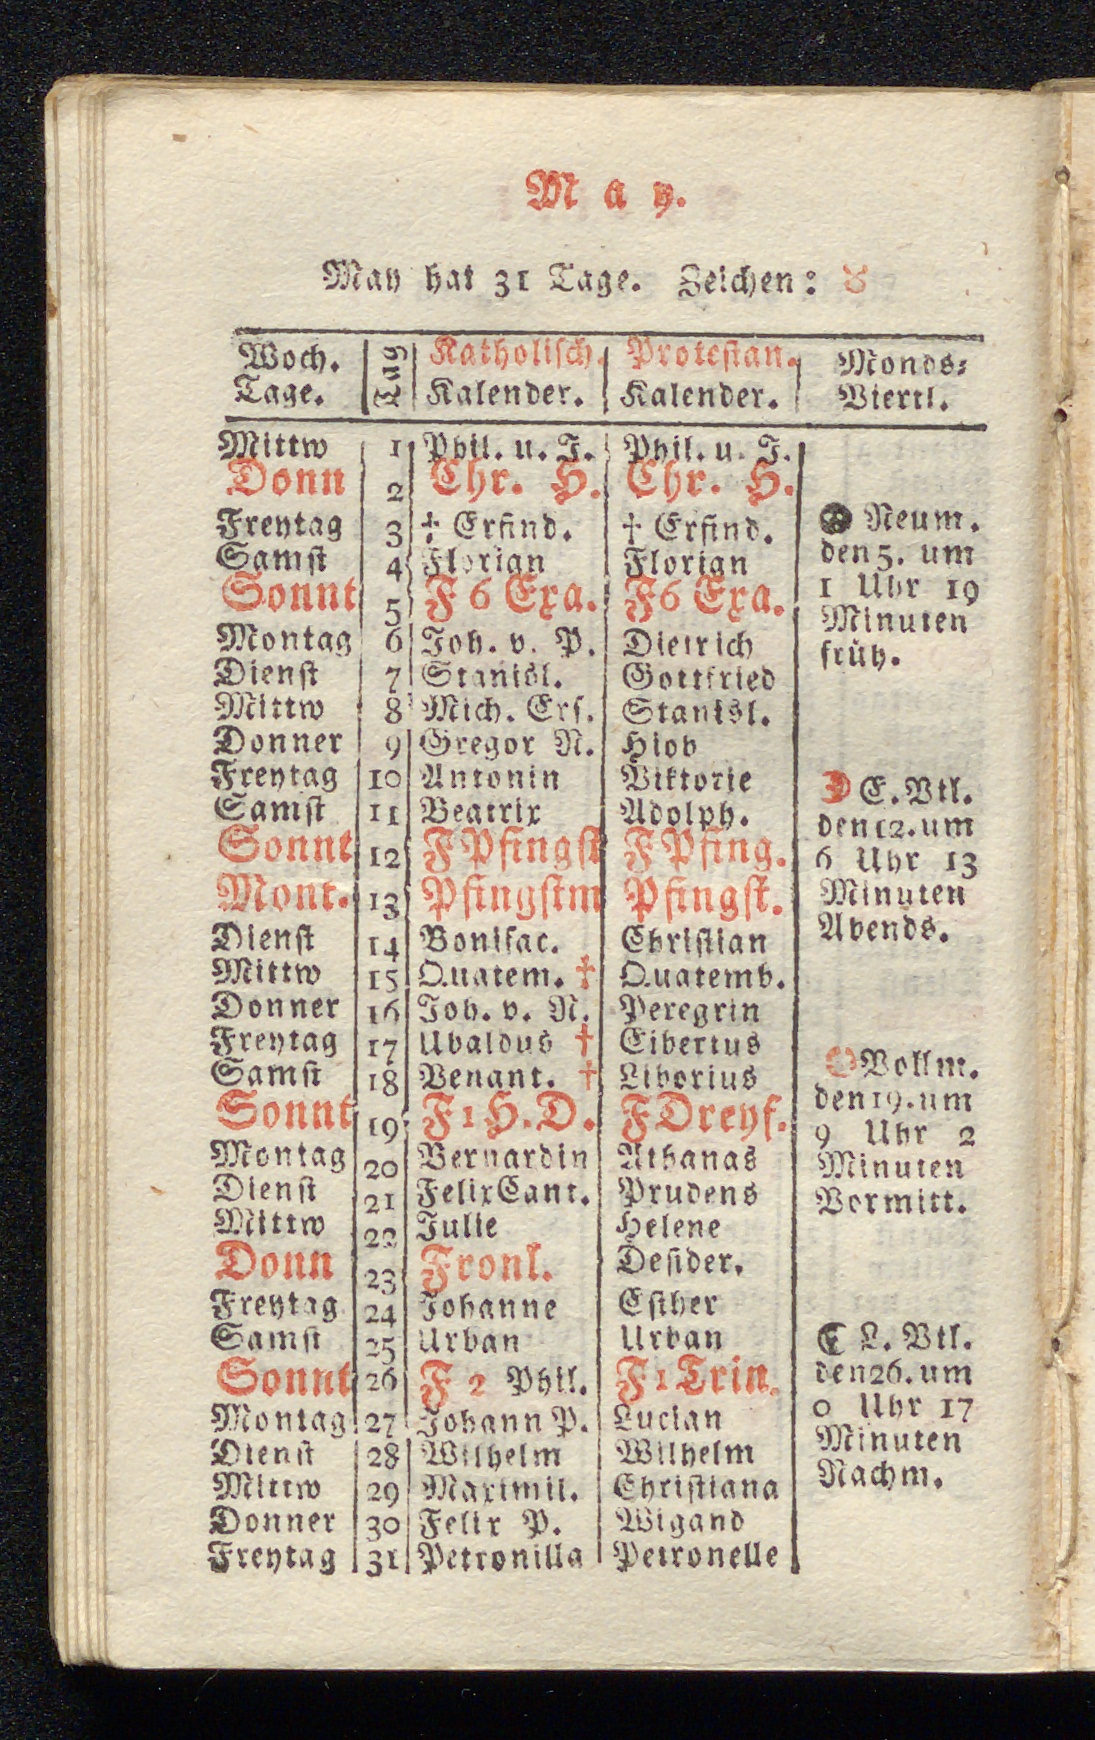 May.
May hat 31 Tage. Zeichen: ♉
Woch. Tage. | Tag | Katholisch. Kalender. | Protestan. Kalender. | Monds- Viertl.
Mittw 1 Phil. u. J. Phil. u. J.
Donn 2 Chr. H. Chr. H.
Freytag 3 † Erfind. † Erfind.
Samst 4 Florian Florian
Sonnt 5 F 6 Exa. F 6 Exa.
Montag 6 Joh. v. P. Dietrich
Dienst 7 Stanisl. Gottfried
Mittw 8 Mich. Ers. Stanisl.
Donner 9 Gregor N. Hiob
Freytag 10 Antonin Viktorie
Samst 11 Beatrix Adolph.
Sonnt 12 F Pfingst F Pfing.
Mont. 13 Pfingstm Pfingst.
Dienst 14 Bonifac. Christian
Mittw 15 Quatem. † Quatemb.
Donner 16 Joh. v. N. Peregrin
Freytag 17 Ubaldus † Eibertus
Samst 18 Venant. † Liborius
Sonnt 19 F 1 H. D. F Dreyf.
Montag 20 Bernardin Athanas
Dienst 21 Felix Cant. Prudens
Mittw 22 Julie Helene
Donn 23 Fronl. Desider.
Freytag 24 Johanne Esther
Samst 25 Urban Urban
Sonnt 26 F 2 Phil. F 1 Trin.
Montag 27 Johann P. Lucian
Dienst 28 Wilhelm Wilhelm
Mittw 29 Maximil. Christiana
Donner 30 Felix P. Wigand
Freytag 31 Petronilla Petronelle
Neum.
den 5. um
1 Uhr 19
Minuten
früh.
E. Vtl.
den 12. um
6 Uhr 13
Minuten
Abends.
Vollm.
den 19. um
9 Uhr 2
Minuten
Vormitt.
L. Vtl.
den 26. um
0 Uhr 17
Minuten
Nachm.